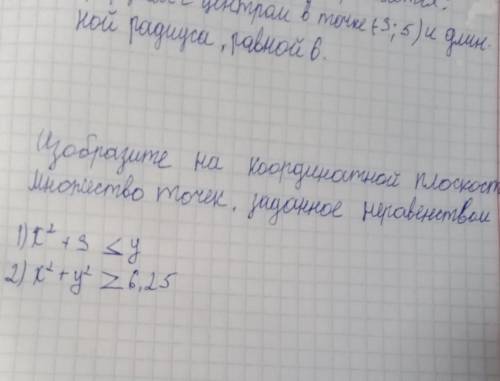 центром в точке (-3; 5) и длин-
ной радиуса, равной 6.
Изобразите на координатной плоскост
множество точек, заданное неравенством
1) x² + 3 ≤ y
2) x² + y² ≥ 6,25